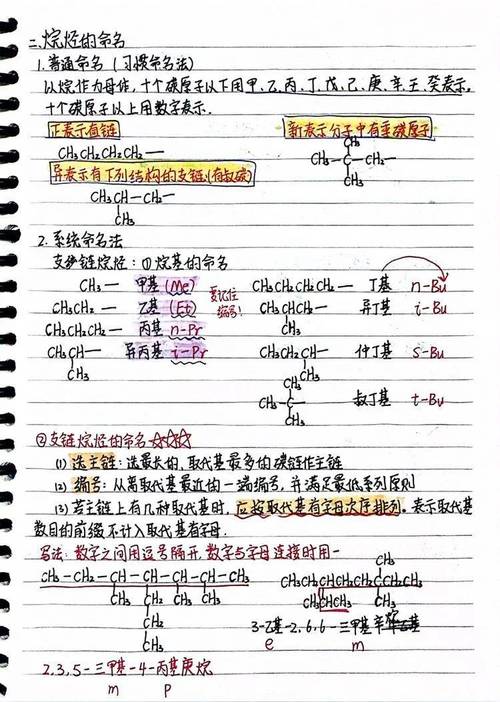 二、烷烃的命名
1.普通命名（习惯命名法）
以烷作为母体，十个碳原子以下用甲、乙、丙、丁、戊、己、庚、辛、壬、癸表示。
十个碳原子以上用数字表示.
正表示直链 新表示分子中有季碳原子
CH₃CH₂CH₂CH₂—
CH₃
CH₃—C—CH₂—
CH₃
异表示有下列结构的支链(有叔碳)
CH₃CH—CH₂—
CH₃
2.系统命名法
支链烷烃：①烷基的命名
CH₃— 甲基(Me) CH₃CH₂CH₂CH₂— 丁基 n-Bu
CH₃CH₂— 乙基(Et) 要记住编号! CH₃CHCH₂— 异丁基 i-Bu
CH₃
CH₃CH₂CH₂— 丙基 n-Pr
CH₃CH— 异丙基 i-Pr CH₃CH₂CH— 仲丁基 s-Bu
CH₃ CH₃
CH₃
CH₃—C— 叔丁基 t-Bu
CH₃
②支链烷烃的命名☆☆☆
(1) 选主链：选最长的，取代基最多的碳链作主链
(2) 编号：从离取代基最近的一端编号，并满足最低系列原则
(3) 若主链上有几种取代基时，应按取代基首字母次序排列。表示取代基
数目的前缀不计入取代基首字母.
写法：数字之间用逗号隔开，数字与字母连接时用-
CH₃—CH₂—CH—CH—CH—CH—CH₃
CH₃ CH₂ CH₃ CH₃
CH₂
CH₃
CH₃
CH₃CH₂CHCH₂CH₂CCH₂CH₃
CH₃CHCH₃ CH₃
3-乙基-2,6,6-三甲基辛烷
e m
2,3,5-三甲基-4-丙基庚烷
m p